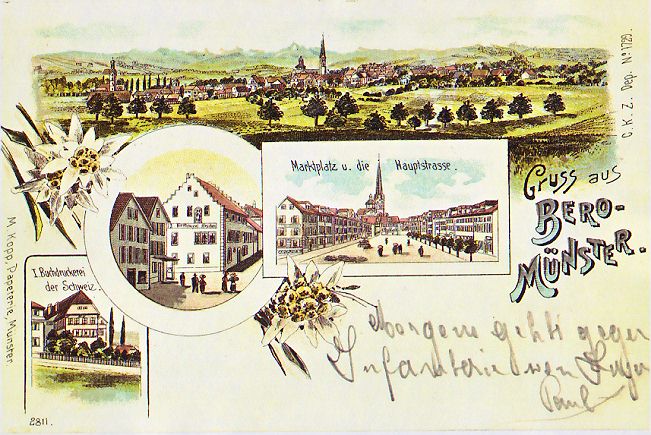 Gruss aus
BERO-
MÜNSTER.
Marktplatz u. die Hauptstrasse.
I. Buchdruckerei
der Schweiz.
M. Kopp, Papeterie, Münster
C. K. Z. Dep. No 1729.
2811.
Morgen geht's gegen
Infanterie von
Paul